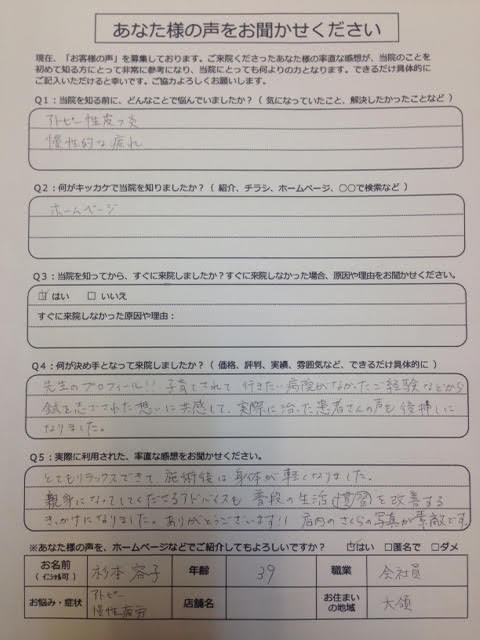 あなた様の声をお聞かせください
現在、「お客様の声」を募集しております。ご来院くださったあなた様の率直な感想が、当院のことを
初めて知る方にとって非常に参考になり、当院にとっても何よりの力となります。できるだけ具体的に
ご記入いただけると幸いです。ご協力よろしくお願いします。
Q1：当院を知る前に、どんなことで悩んでいましたか？（ 気になっていたこと、解決したかったことなど ）
アトピー性皮フ炎
慢性的な疲れ
Q2：何がキッカケで当院を知りましたか？（ 紹介、チラシ、ホームページ、〇〇で検索など ）
ホームページ
Q3：当院を知ってから、すぐに来院しましたか？すぐに来院しなかった場合、原因や理由をお聞かせください。
☑ はい □ いいえ
すぐに来院しなかった原因や理由：
Q4：何が決め手となって来院しましたか？（ 価格、評判、実績、雰囲気など、できるだけ具体的に ）
先生のプロフィール!! 子育てされて 行きたい病院がなかったご経験などから
鍼を志された想いに共感して、実際に治った患者さんの声も後押しに
なりました。
Q5：実際に利用された、率直な感想をお聞かせください。
とてもリラックスできて、施術後は身体が軽くなりました。
親身になってしてくださるアドバイスも 普段の生活習慣を改善する
きっかけになりました。ありがとうございます!! 店内のさくらの写真が素敵です。
※あなた様の声を、ホームページなどでご紹介してもよろしいですか？ ☑はい □匿名で □ダメ
お名前 杉本 容子 年齢 39 職業 会社員
（ イニシャル可 ）
お悩み・症状 アトピー 慢性疲労 店舗名 お住まいの地域 大領